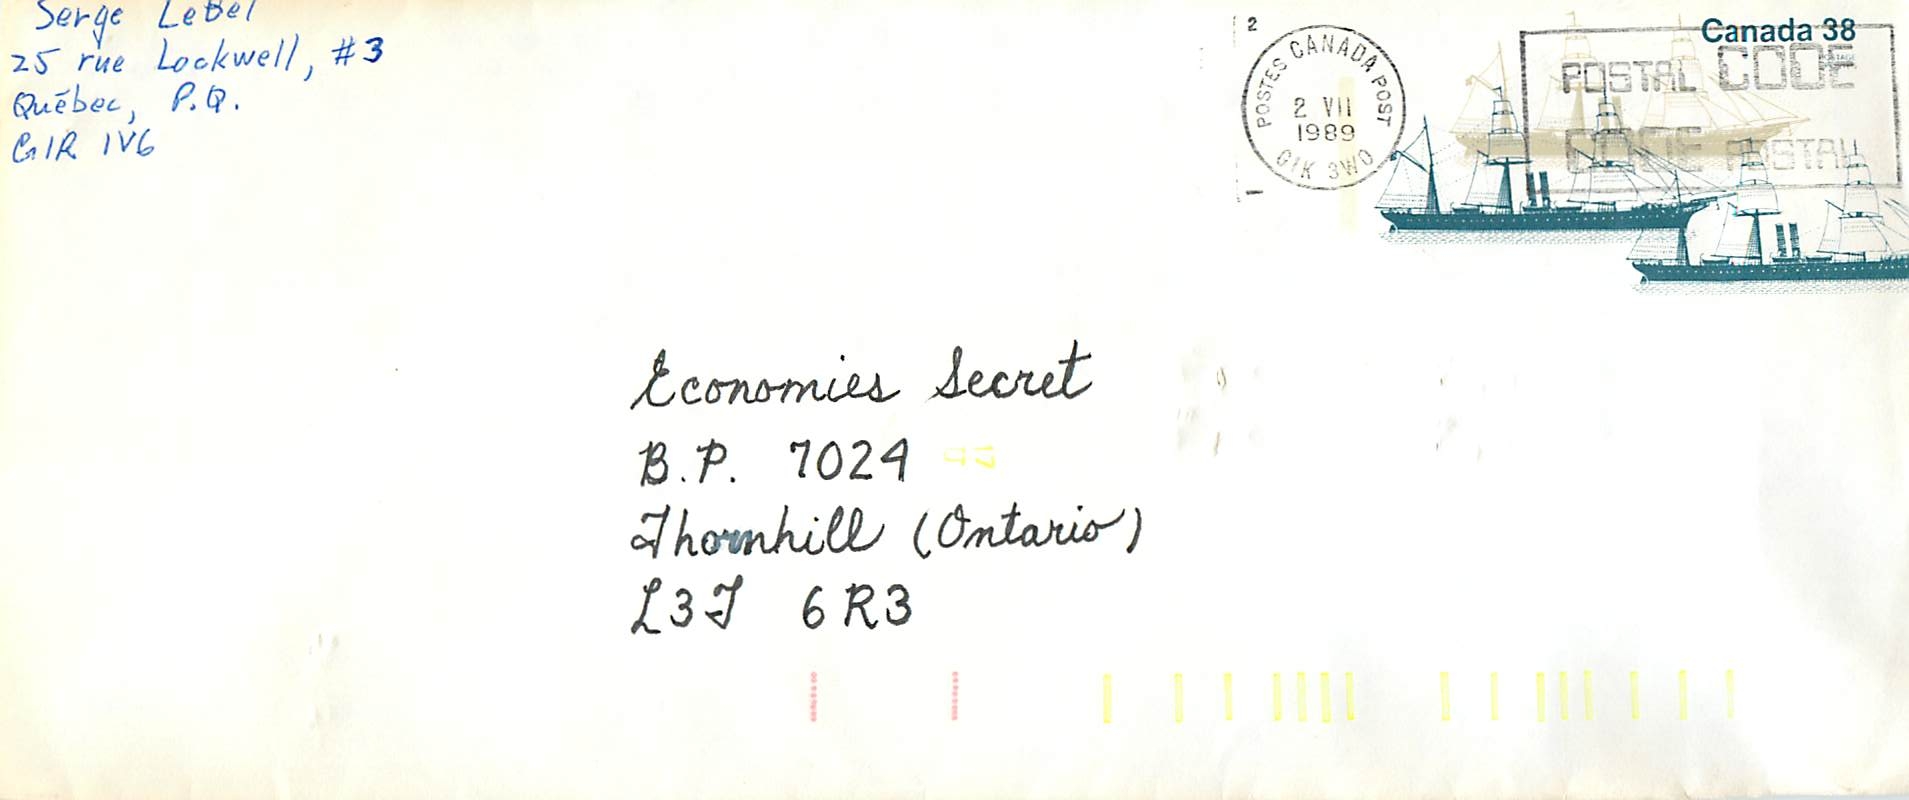 Serge LeBel
25 rue Lockwell, #3
Québec, P.Q.
G1R 1V6
2
POSTES CANADA POST
2 VII
1989
G1K 3W0
1
Canada 38
POSTAL CODE
CODE POSTAL
Economies Secret
B.P. 7024
Thornhill (Ontario)
L3T 6R3